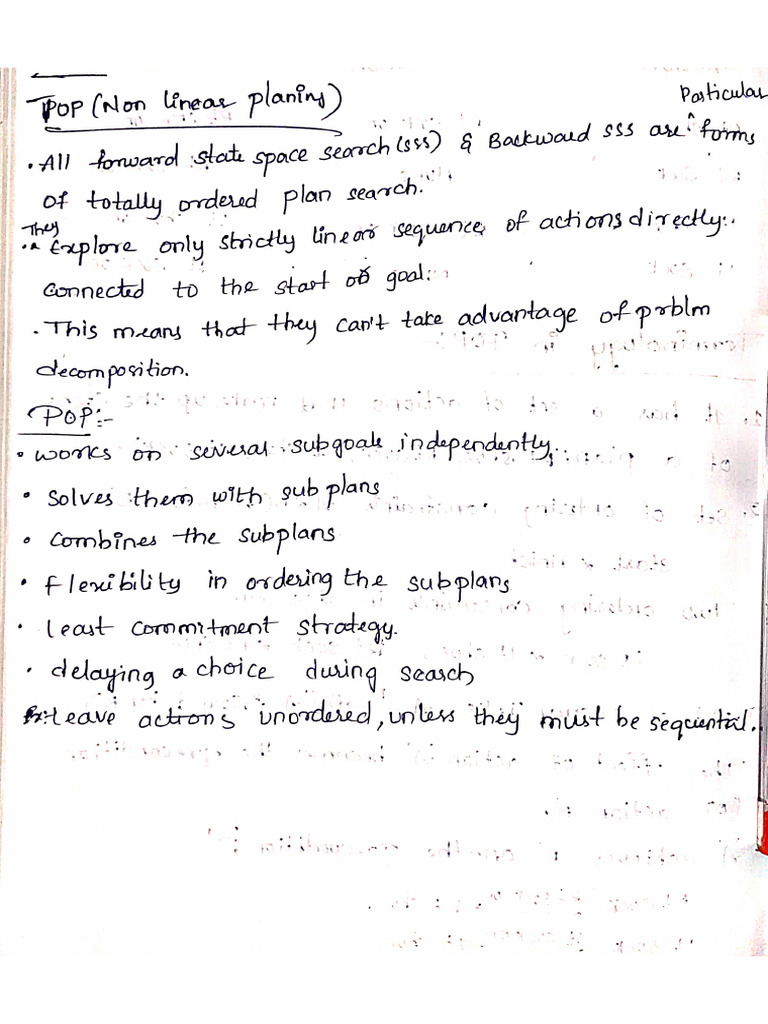 POP (Non linear planing)
Particular
• All forward state space search (sss) & Backward sss are ^ forms
of totally ordered plan search.
They
• Explore only strictly linear sequence of actions directly
connected to the start or goal.
• This means that they can't take advantage of prblm
decomposition.
POP:-
• works on several subgoals independently,
• Solves them with sub plans
• Combines the subplans
• flexibility in ordering the subplans
• least commitment strategy.
• delaying a choice during search
Ex: leave actions unordered, unless they must be sequential.